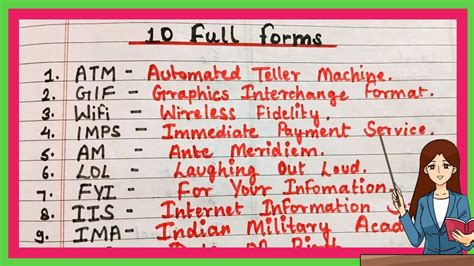 10 Full forms
1. ATM - Automated Teller Machine.
2. GIF - Graphics Interchange Format.
3. Wifi - Wireless Fidelity.
4. IMPS - Immediate Payment Service.
5. AM - Ante Meridiem.
6. LOL - Laughing Out Loud.
7. FYI - For Your Infomation.
8. IIS - Internet Information S
9. IMA- Indian Military Acad